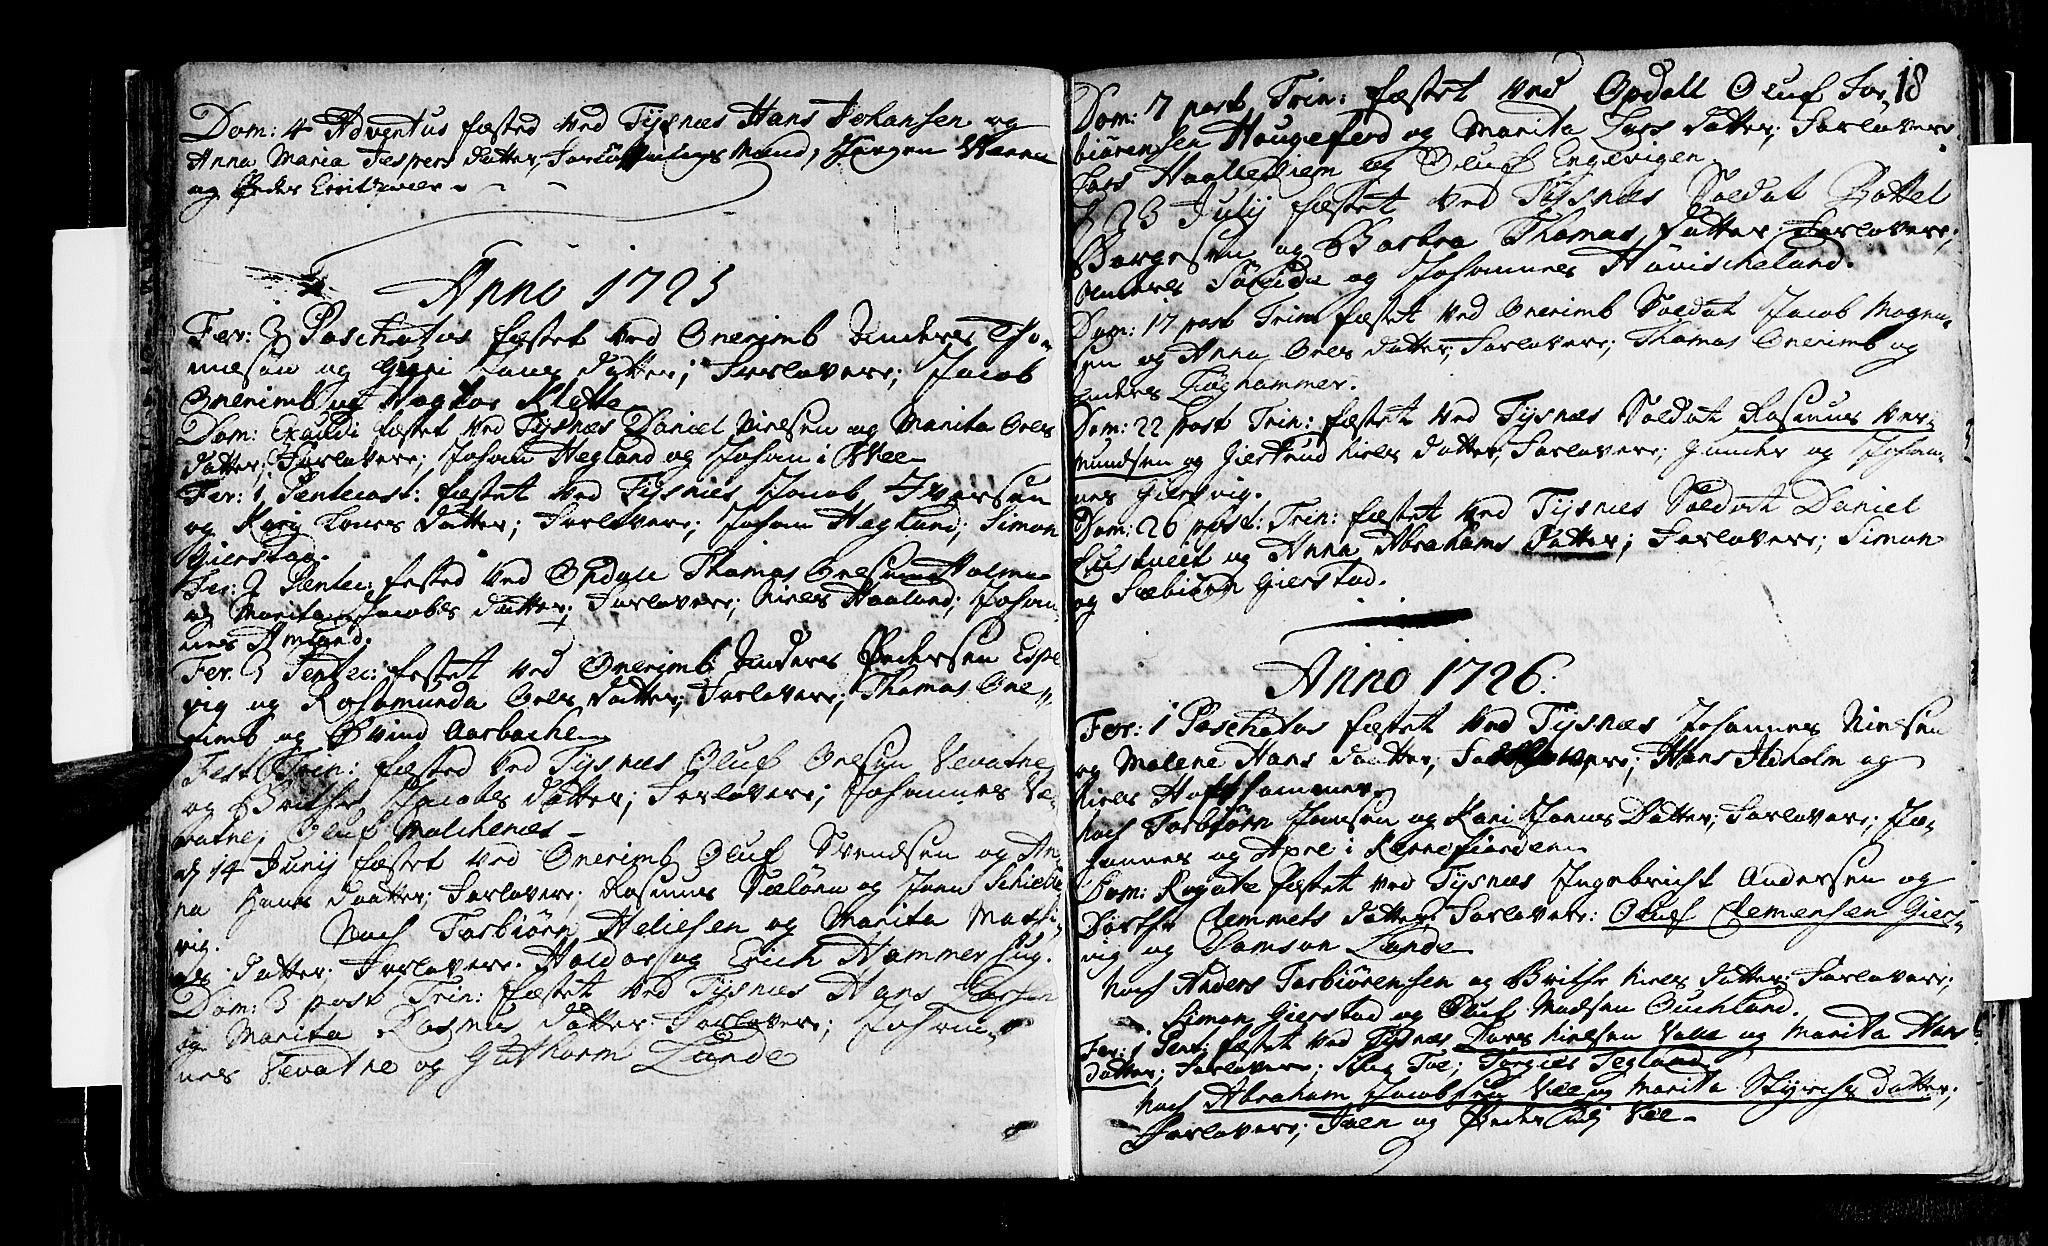 Dom: 4 Adventus fæsted ved Tysnæs Hans Johansen og
Anna Maria Jespers datter, Forlovelses Mænd, Jørgen Wærn
og Peder
Anno 1725
Fer: 3 Paschatos fæstet ved Onerimb Anders Tho-
mesøn og Guri datter; Forlovere; Jacob
Onerimb og Klette
Dom: Exaudi fæstet ved Tysnæs Daniel Nielsen og Marita Oles
datter; Forlovere; Johan Hegland og Johan i Vee
Fer: 1 Pentecost: fæstet ved Tysnæs Jacob Iversen
og Kari datter; Forlovere; Johan Hegland; Simon
Gierstad.
Fer: 2 Pentec: fæsted ved Opdale Thomas Olesen Holm
og Marita Jacobs datter; Forlovere; Niels Haaland; Johan-
nes Amland.
Fer. 3 Pentec: fæstet ved Onerimb Anders Pedersen Espe
vig og Rosamunda Oles datter; Forlovere; Thomas One-
rimb og Øvind Aarbache
Fest Trin: fæsted ved Tysnæs Oluf Olesøn Vevatne
og Brithe Jacobs datter; Forlovere; Johannes Ve-
vatne, Oluf Malchenæs
d 14 Junij fæstet ved Onerimb Oluf Svendsen og An-
na Hans daatter; Forlovere; Rasmus Sæløen og John Schielle
vig.
Nach Torbiørn Heliesen og Marita Math-
datter; Forlovere. Haldor og Erich Hammershug.
Dom: 3 post Trin: fæstet ved Tysnæs Hans Larsen
og Marita Rasmus datter Forlovere; Johan-
nes Vevatne og Guthorm Lunde
18
Dom: 7 post Trin: fæstet ved Opdall Oluf Tor-
biørensen Hougeford og Marita Lars datter; Forlovere
Lars og Oluf Engevigen
d 23 Julij fæstet ved Tysnæs Soldat Bottel
Børgesen og Barbra Thomas datter Forlovere;
Anders Søreide og Johannes Høvischeland.
Dom: 17 post Trin fæstet ved Onerimb Soldat Jacob Magnu-
sen og Anna Oles datter; Forlovere; Thomas Onerimb og
Anders Løghammer.
Dom: 22 post Trin: fæstet ved Tysnæs Soldat Rasmus Ver-
mundsen og Giertrud Niels datter; Forlovere; Gunder og Johan-
nes Giersvig.
Dom: 26 post: Trin: fæstet ved Tysnæs Soldat Daniel
og Anna Abrahams Datter; Forlovere; Simon
og Sæbiørn Gierstad.
Anno 1726.
Fer: 1 Paschatos fæstet ved Tysnæs Johannes Nielsen
og Malene Hans daatter; Forlovere; Hans og
Niels Hofshammer
Nach Torbiørn Jonsen og Kari Jones Datter; Forlovere; Jo-
hannes og Axel i Rennefiorden
Dom: Rogate fæstet ved Tysnæs Ingebricht Andersen og
Dorthe Clemmets datter; Forlovere: Oluf Clemensen Giers-
vig og Samson Lunde
Nach Anders Torbiørensen og Brithe Niels datter; Forlovere;
Simon Gierstad og Oluf Madsen Ouchland.
Fer: 1 Pent: fæstet ved Tysnæs Lars Nielsen Valle og Marita Hans
datter; Forlovere; Torgies Tegland
Nach Abraham Jacobsen Vee og Marita Styrchs datter;
Forlovere; Iven og Peder Vee